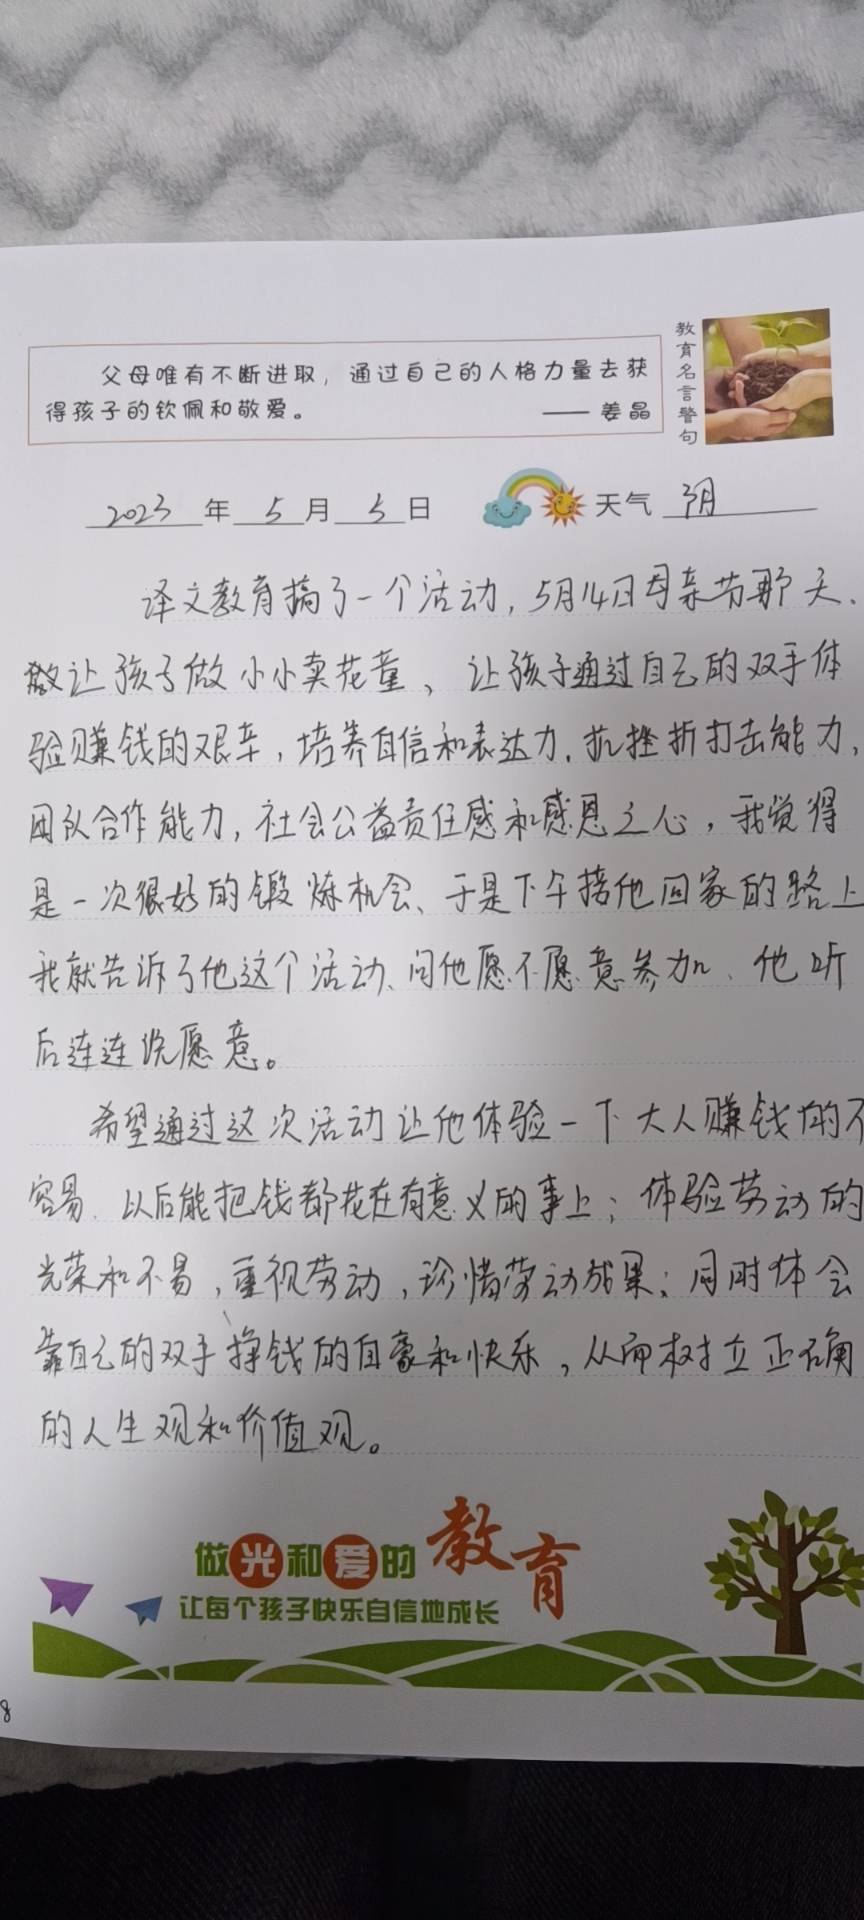 父母唯有不断进取，通过自己的人格力量去获
得孩子的钦佩和敬爱。 —— 姜晶
教育名言警句
2023年5月5日 天气 阴
译文教育搞了一个活动，5月14日母亲节那天、
让孩子做小小卖花童、让孩子通过自己的双手体
验赚钱的艰辛，培养自信和表达力，抗挫折打击能力，
团队合作能力，社会公益责任感和感恩之心，我觉得
是一次很好的锻炼机会、于是下午接他回家的路上
我就告诉了他这个活动、问他愿不愿意参加、他听
后连连说愿意。
希望通过这次活动让他体验一下大人赚钱的不
容易、以后能把钱都花在有意义的事上；体验劳动的
光荣和不易，重视劳动，珍惜劳动成果；同时体会
靠自己的双手挣钱的自豪和快乐，从而树立正确
的人生观和价值观。
做光和爱的教育
让每个孩子快乐自信地成长
8